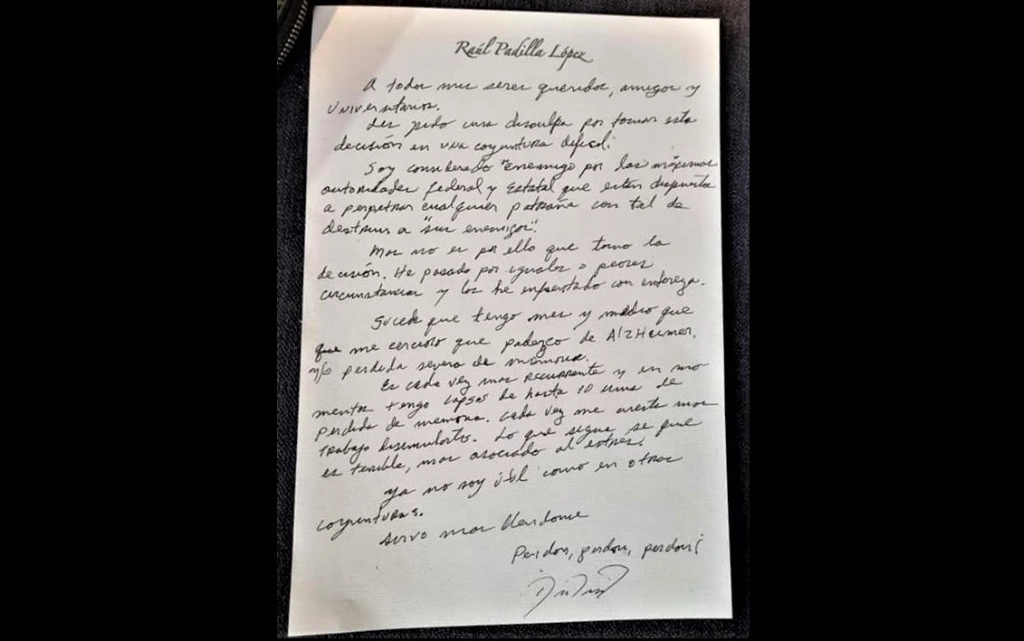 Raúl Padilla López
A todos mis seres queridos, amigos y
Universitarios.
Les pido una disculpa por tomar esta
decisión en una coyuntura dificil.
Soy considerado "enemigo por las máximas
autoridades federal y Estatal que están dispuestas
a perpetrar cualquier patraña con tal de
destruir a "sus enemigos".
Mas no es por ello que tomo la
decisión. He pasado por iguales o peores
circunstancias y las he enfrentado con entereza.
Sucede que tengo mes y medio que
que me cercioro que padezco de AlzHeimer,
y/o perdida severa de memoria.
Es cada vez mas recurrente y en mo
mentos tengo lapsos de hasta 10 de
perdida de memoria. Cada vez me cuesta mas
trabajo disimularlos. Lo que sigue, se que
es terrible, mas asociado al estres.
Ya no soy útil como en otras
coyunturas.
Sirvo mas
Perdon, perdon, perdon!